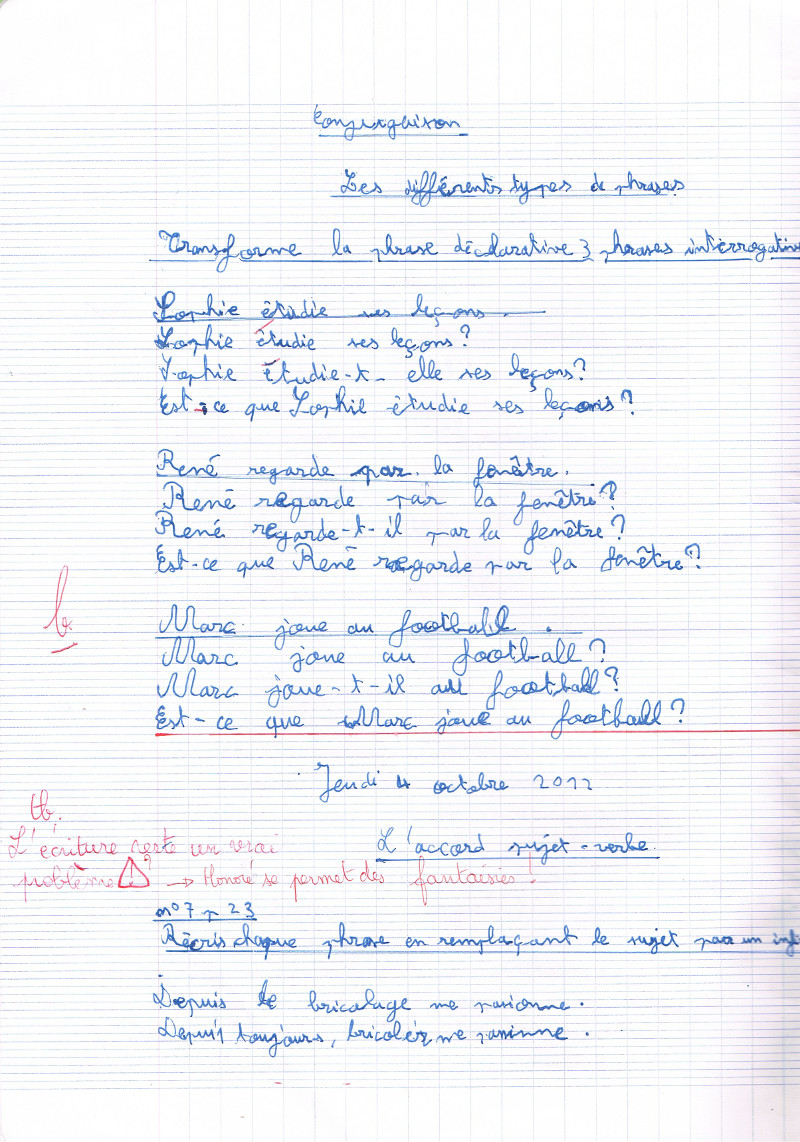 Conjugaison
Les différents types de phrases
Transforme la phrase déclarative 3 phrases interrogative
Sophie étudie ses leçons.
Sophie étudie ses leçons ?
Sophie étudie-t-elle ses leçons ?
Est-ce que Sophie étudie ses leçons ?
René regarde par la fenêtre.
René regarde par la fenêtre ?
René regarde-t-il par la fenêtre ?
Est-ce que René regarde par la fenêtre ?
b.
Marc joue au football.
Marc joue au football ?
Marc joue-t-il au football ?
Est-ce que Marc joue au football ?
Jeudi 4 octobre 2012
tb.
L'écriture reste un vrai
problème ! → Honoré se permet des fantaisies !
L'accord sujet-verbe.
n°7 p 23
Récris chaque phrase en remplaçant le sujet par un inf
Depuis le bricolage me passionne.
Depuis toujours, bricoler me